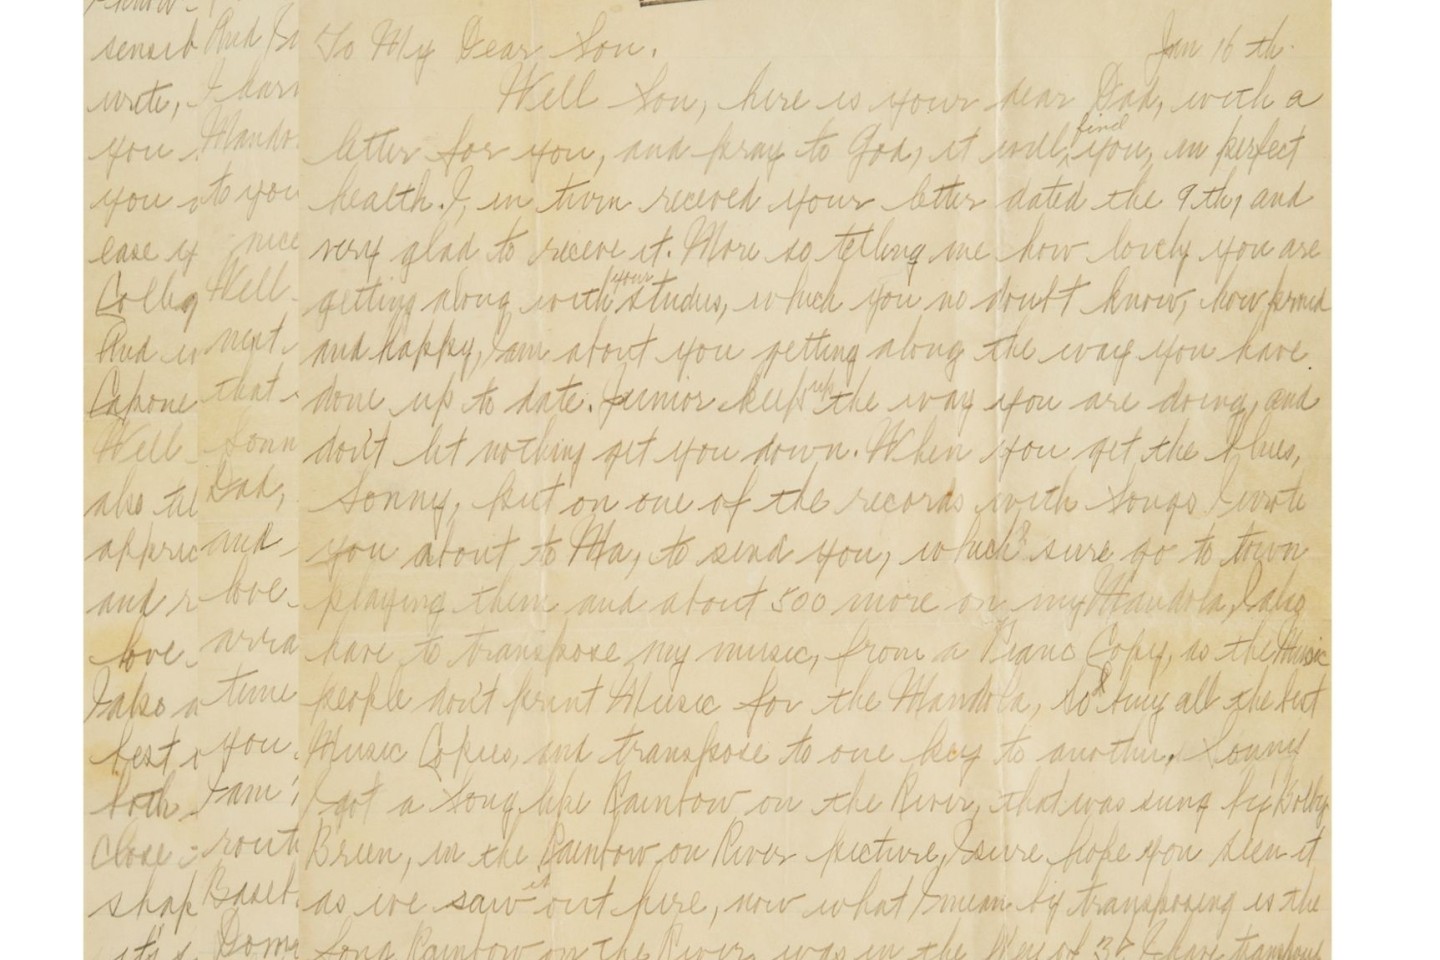 To My Dear Son. Jan 16 th.
Well Son, here is your dear Dad, with a
letter for you, and pray to God, it will, find you, in perfect
health. I, in turn receved your letter dated the 9th, and
very glad to receve it. More so telling me how lovely you are
getting along with your studies, which you no doubt know, how proud
and happy, I am about you getting along the way you have
done up to date. Junior keep up the way you are doing, and
don't let nothing get you down. When you get the blues,
Sonny, put on one of the records with songs I wrote
you about to Ma, to send you, which sure go to town
playing them and about 500 more on my Mandola, I also
have to transpose my music, from a Piano Copy, as the Music
people don't print Music for the Mandola, so I buy all the best
Music Copies, and transpose to one key to another. Sonny
I got a Song like Rainbow on the River, that was sung by Bobby
Breen, in the Rainbow on River picture, I sure hope you seen it
as we saw it out here, now what I mean by transposing is the
Song Rainbow on the River, was in the Key of I have transpose
know
sensib
write,
you
you
ease if
Colleg
And
Capone
Well
also
appric
and
love
I also a
best
both
Close
shap
it's
And
I
Mando
to you
nice
Well
next
that
Sonn
Dad,
and
love
arra
time
you
I am
rout
Baseb